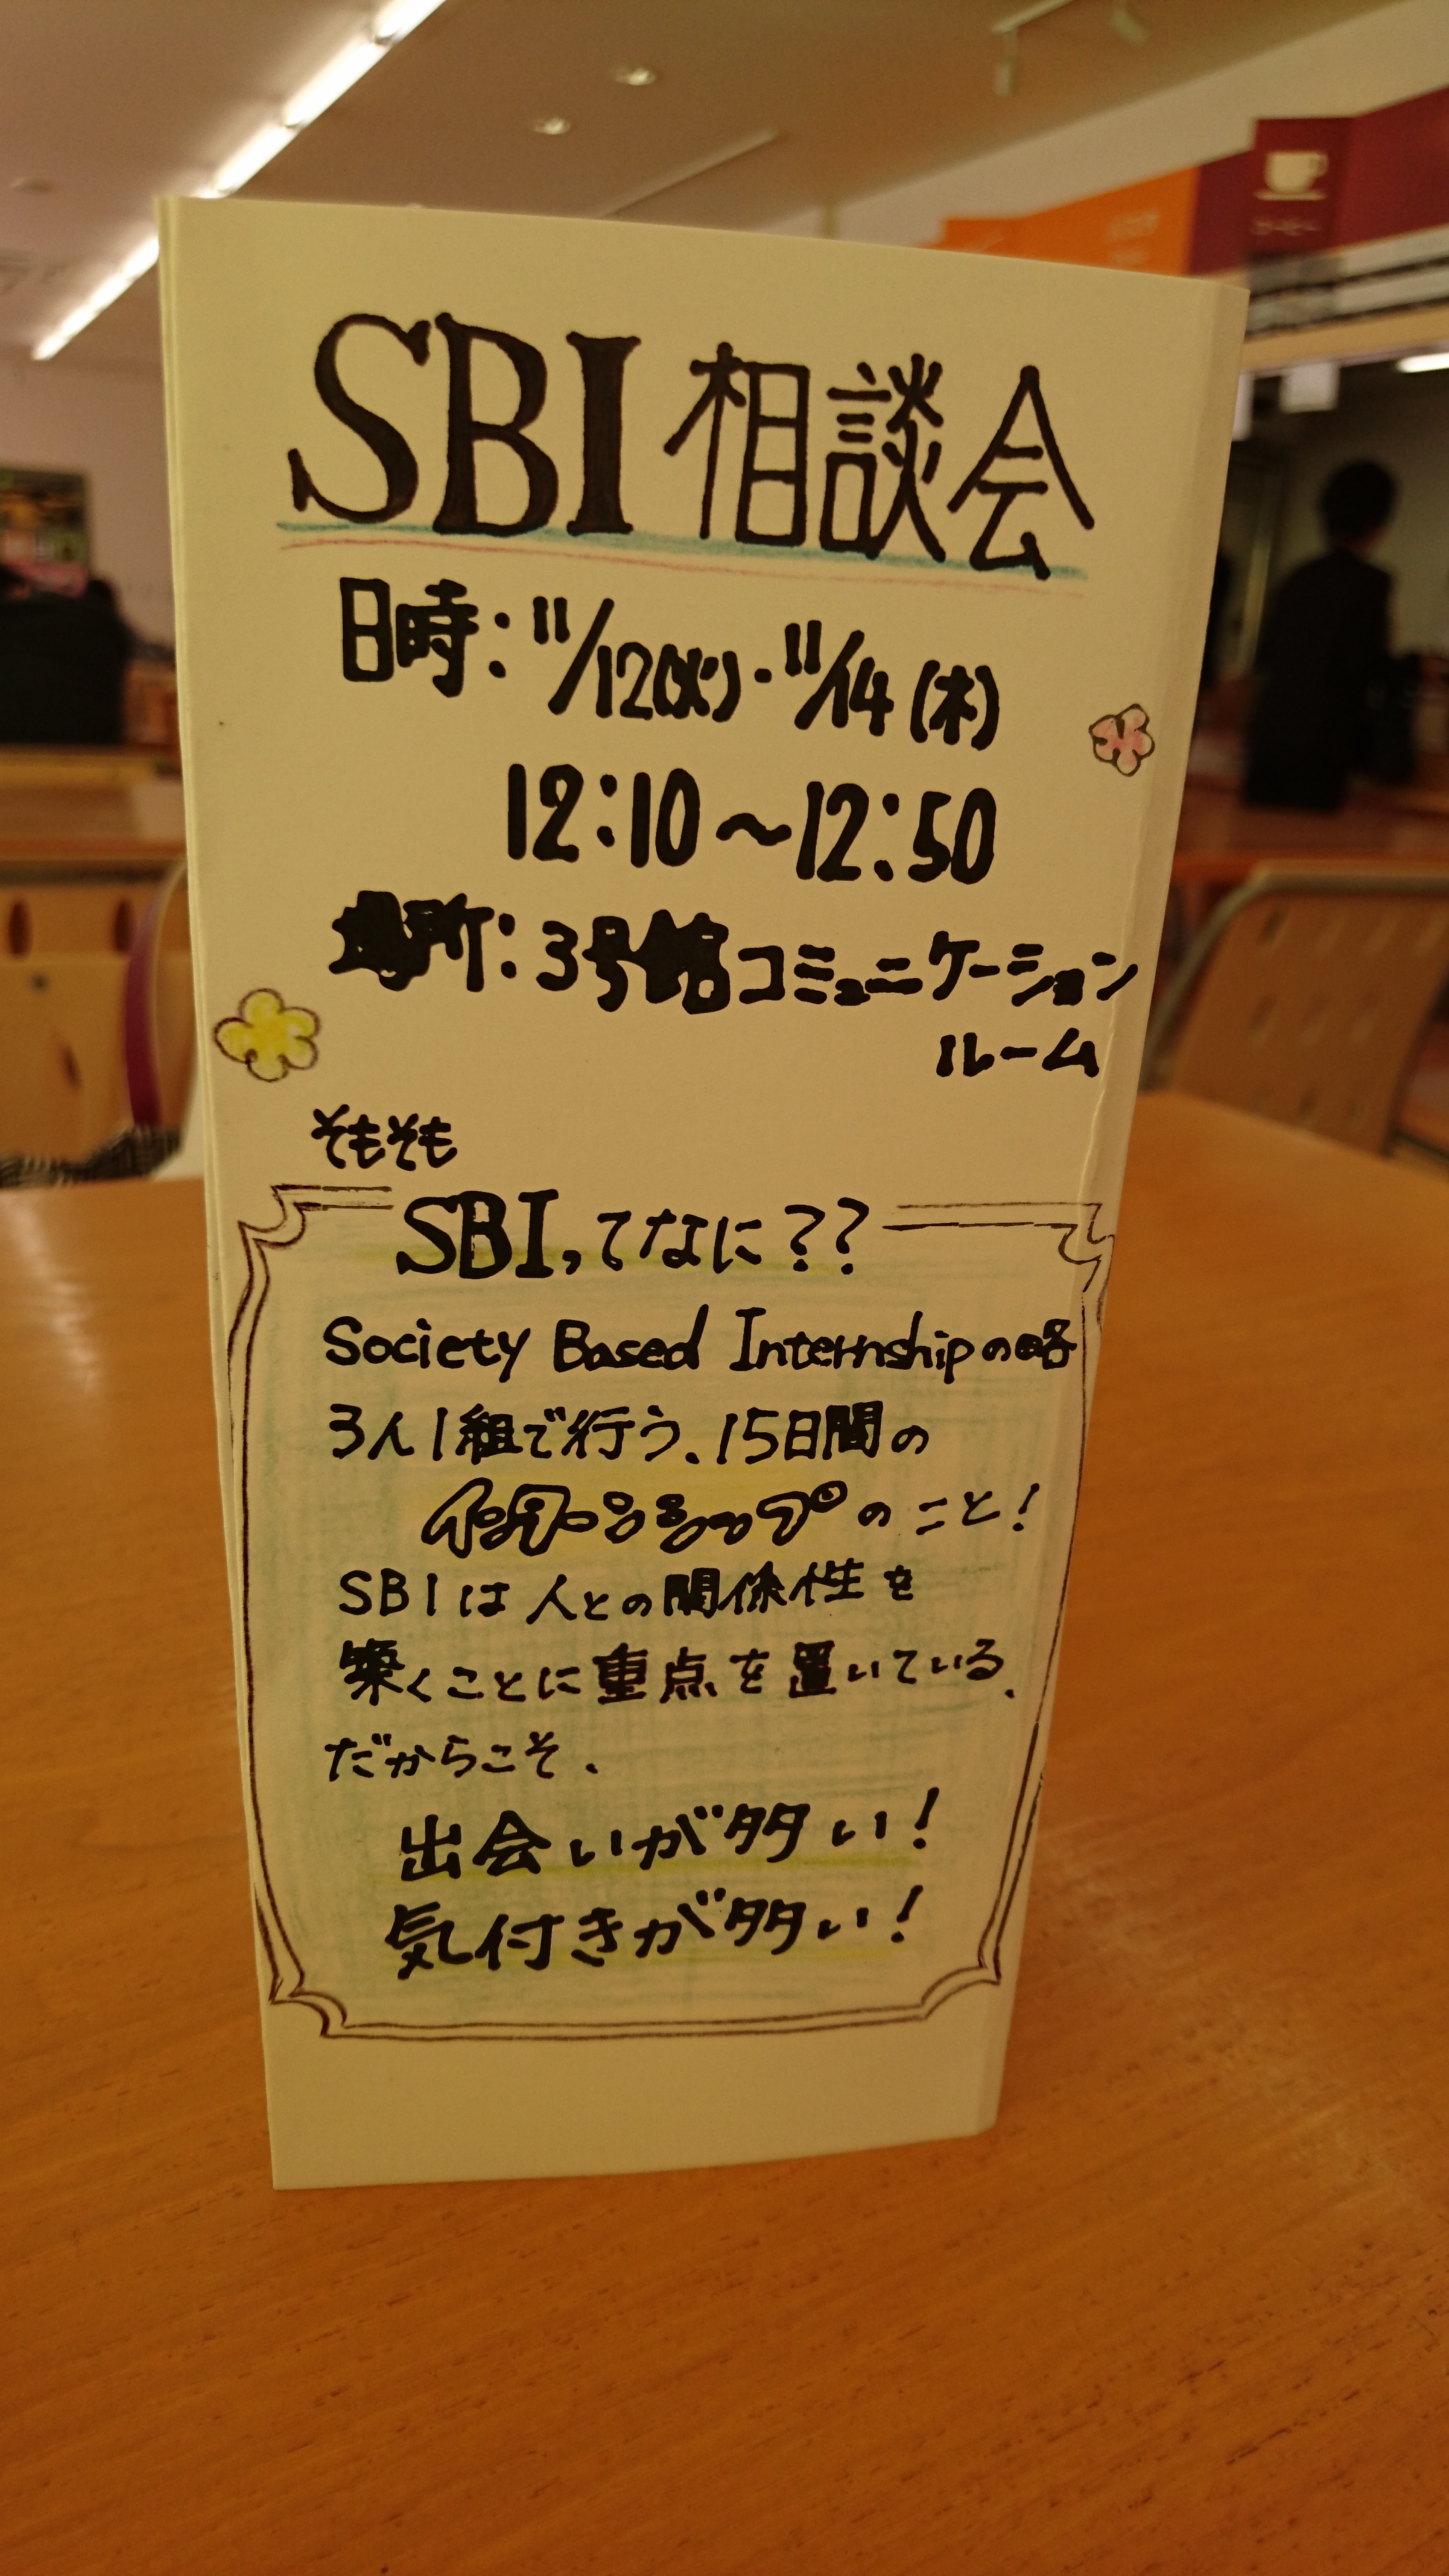 SBI 相談会
日時：11/12(火)・11/14(木)
12:10～12:50
場所：3号館コミュニケーション
ルーム
そもそも
SBI,てなに??
Society Based Internshipの略
3人1組で行う、15日間の
インターンシップのこと!
SBIは人との関係性を
築くことに重点を置いている、
だからこそ、
出会いが多い!
気付きが多い!
コーヒー